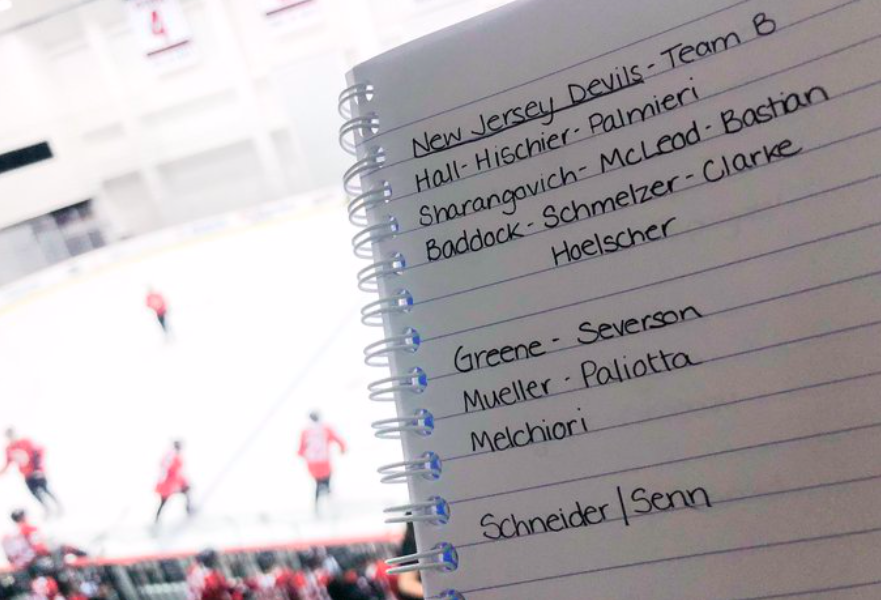 4
New Jersey Devils - Team B
Hall - Hischier - Palmieri
Sharangovich - McLeod - Bastian
Baddock - Schmelzer - Clarke
Hoelscher
Greene - Severson
Mueller - Paliotta
Melchiori
Schneider | Senn